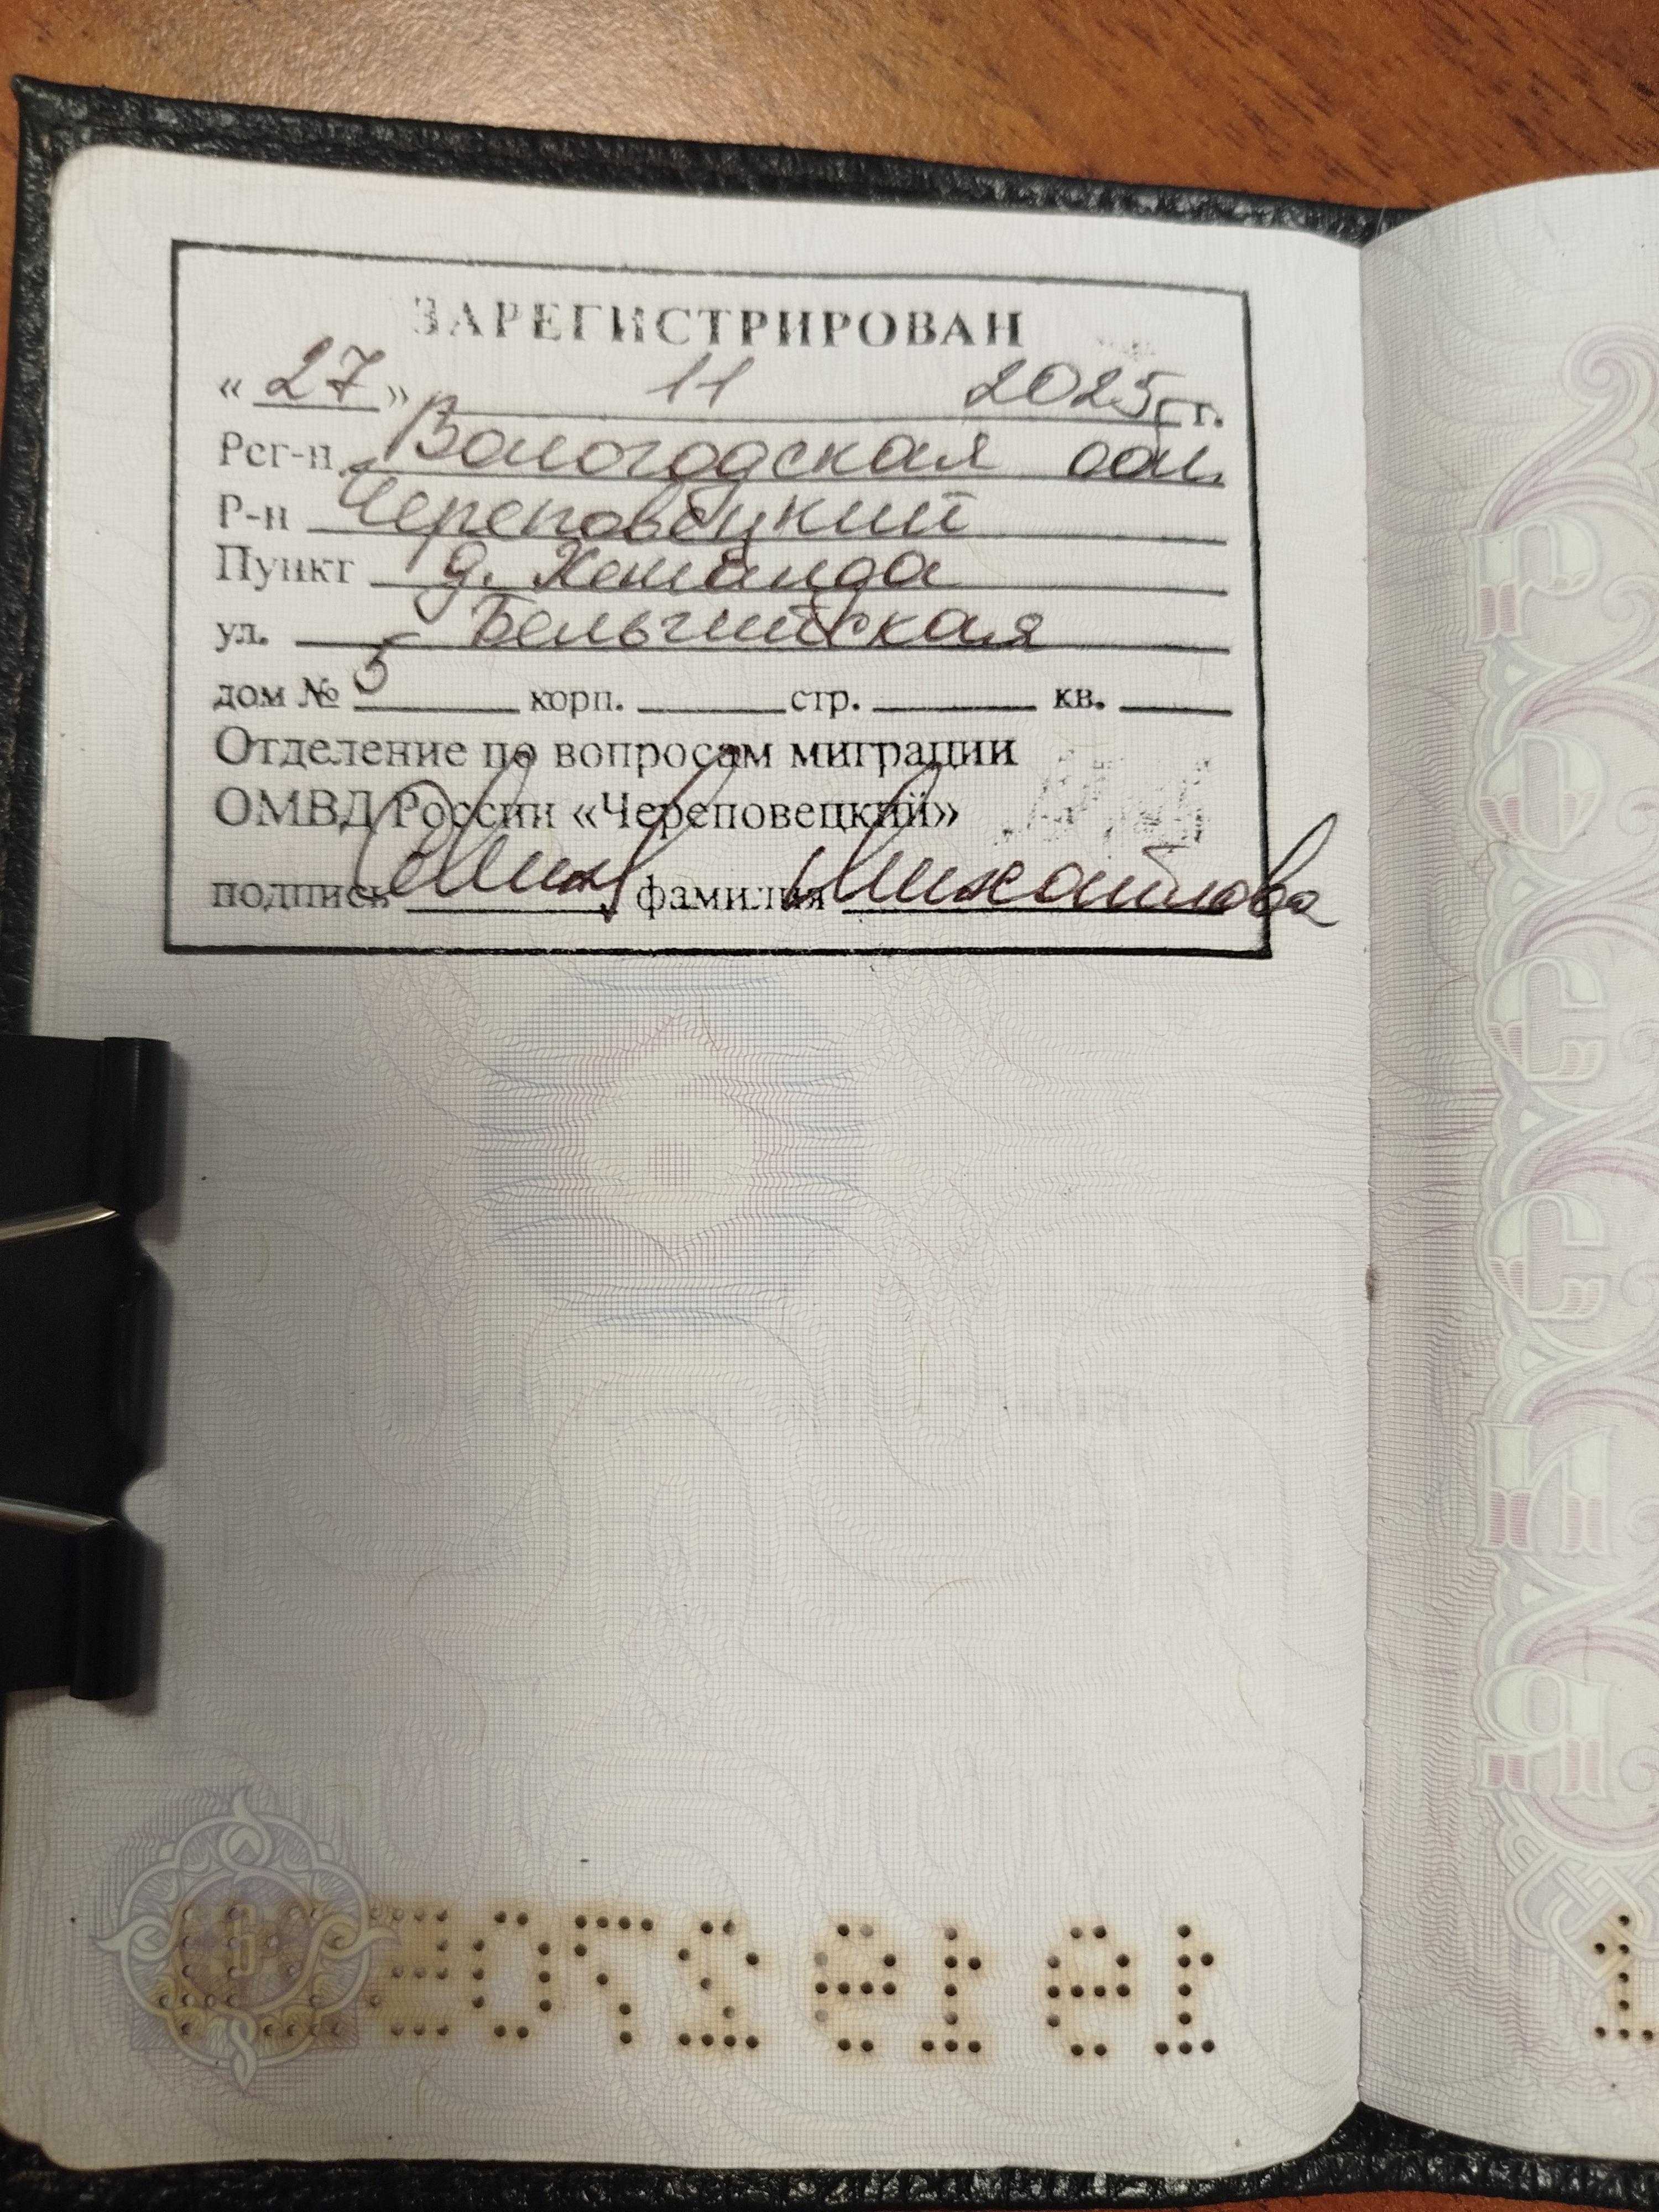 ЗАРЕГИСТРИРОВАН
«27» 11 2025 г.
Рег-н Вологодская обл.
Р-н Череповецкий
Пункт д. Хемалда
ул. Бельгийская
дом № 5 корп. стр. кв.
Отделение по вопросам миграции
ОМВД России «Череповецкий»
подпись фамилия Михайлова